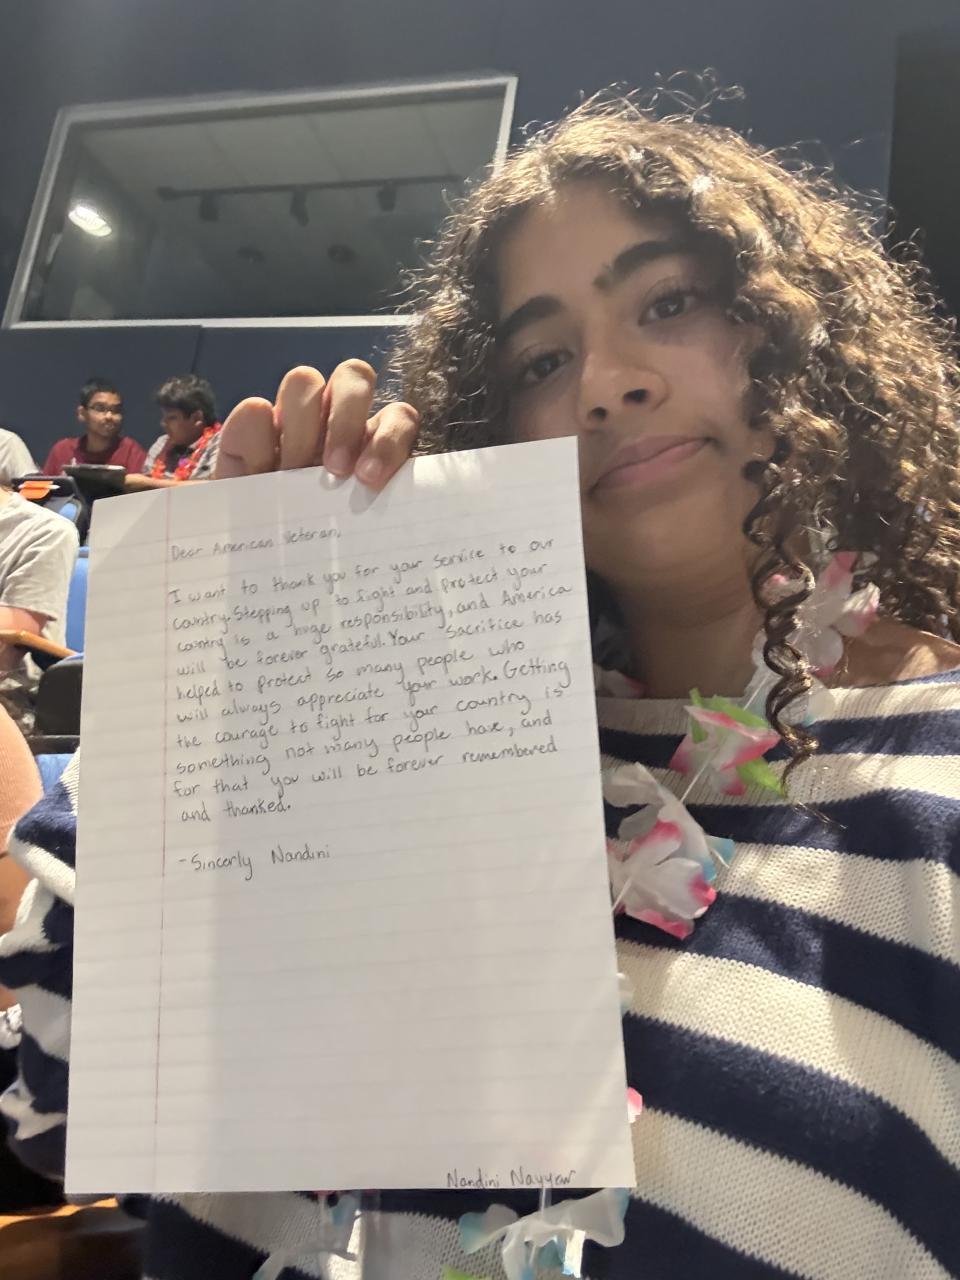 Dear American Veteran,
I want to thank you for your service to our
country. Stepping up to fight and protect your
country is a huge responsibility, and America
will be forever grateful. Your sacrifice has
helped to protect so many people who
will always appreciate your work. Getting
the courage to fight for your country is
something not many people have, and
for that you will be forever remembered
and thanked.
-Sincerly Nandini
Nandini Nayyar